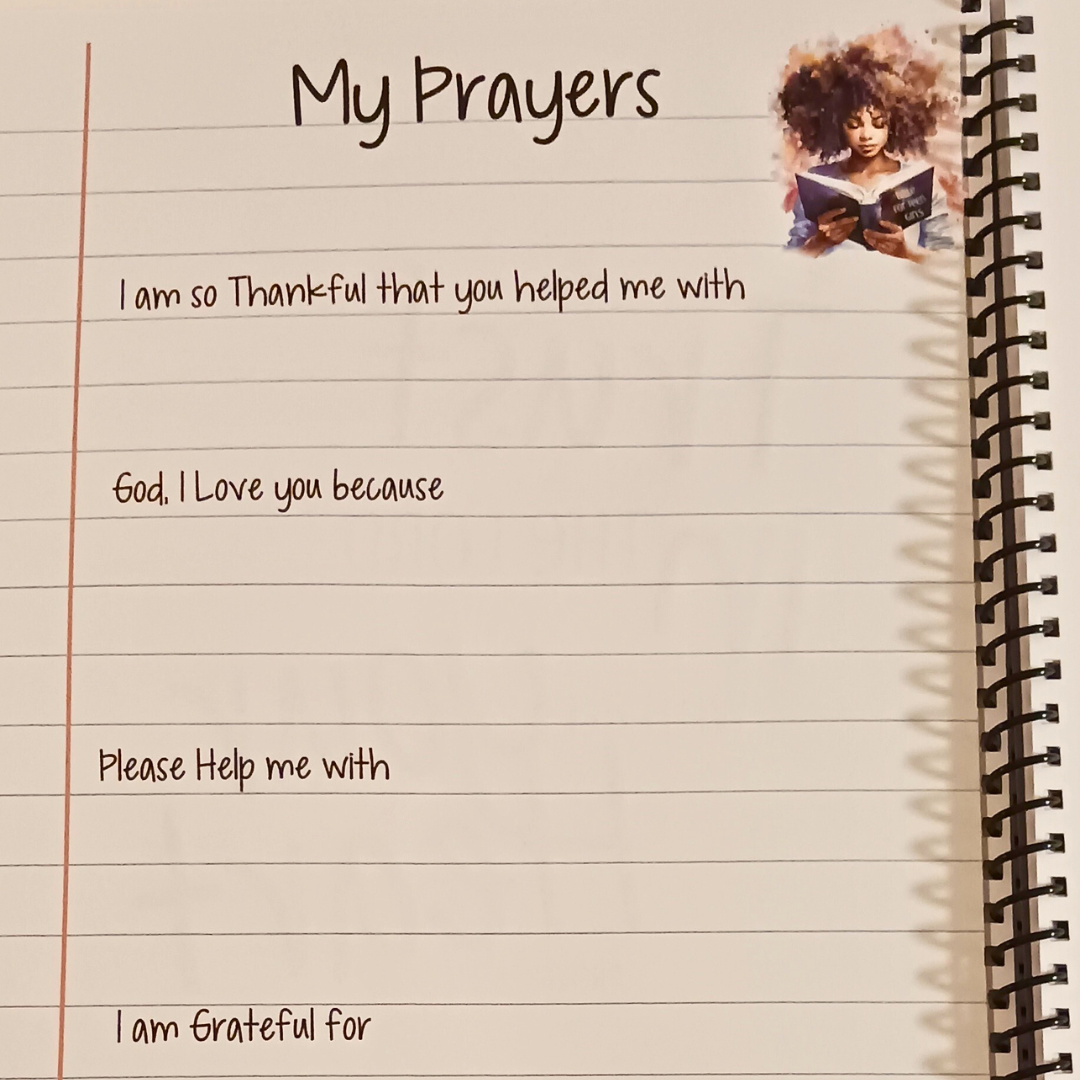 My Prayers
Bible
for Teen
Girls
I am so Thankful that you helped me with
God, I Love you because
Please Help me with
I am Grateful for